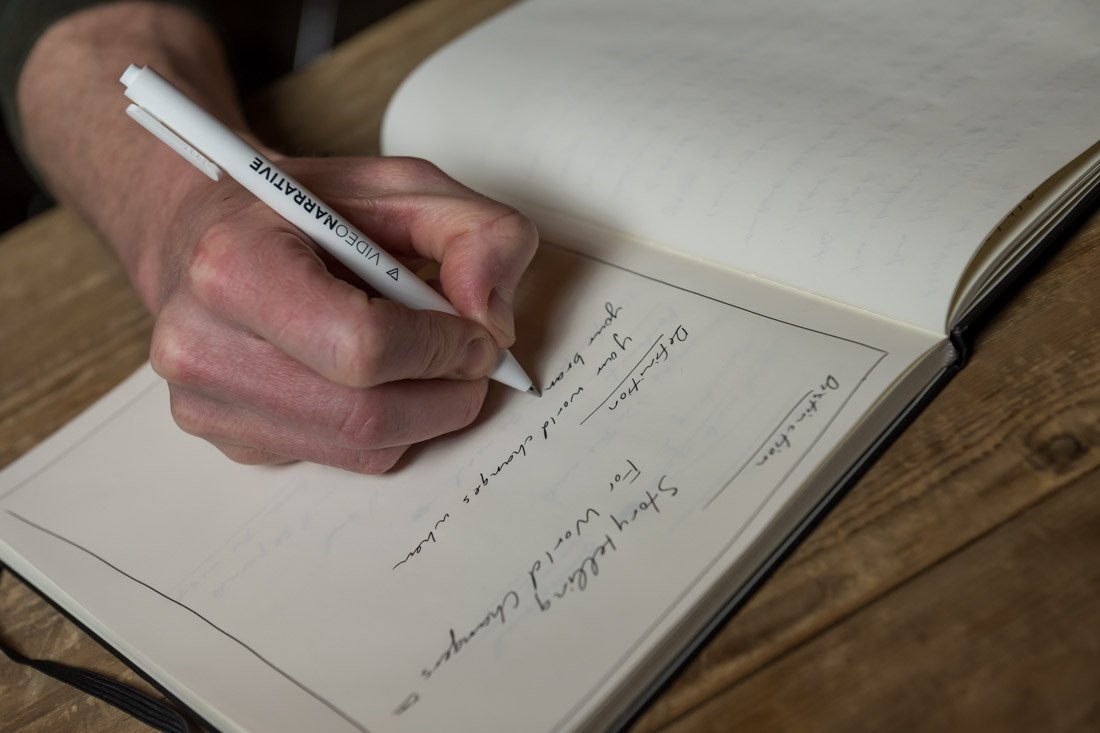 Distinction
Story telling
For World Changers
Definition
your world changes when
your bran
VIDEONARRATIVE